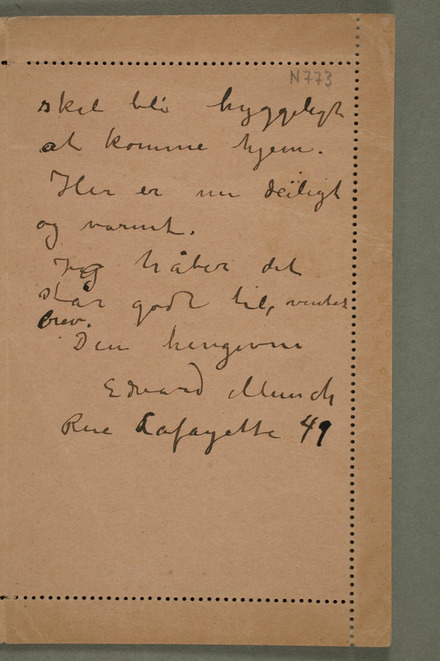 N 773
skal bli hyggeligt
at komme hjem.
Her er nu deiligt
og varmt.
Jeg håber det
står godt til, venter
brev.
Din hengivne
Edvard Munch
Rue Lafayette 49